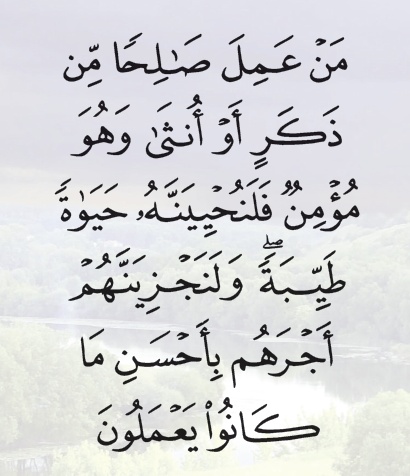 مَنۡ عَمِلَ صَـٰلِحًا مِّن
ذَكَرٍ أَوۡ أُنثَىٰ وَهُوَ
مُؤۡمِنٌ فَلَنُحۡيِيَنَّهُۥ حَيَوٰةً
طَيِّبَةًۖ وَلَنَجۡزِيَنَّهُمۡ
أَجۡرَهُم بِأَحۡسَنِ مَا
كَانُوا۟ يَعۡمَلُونَ